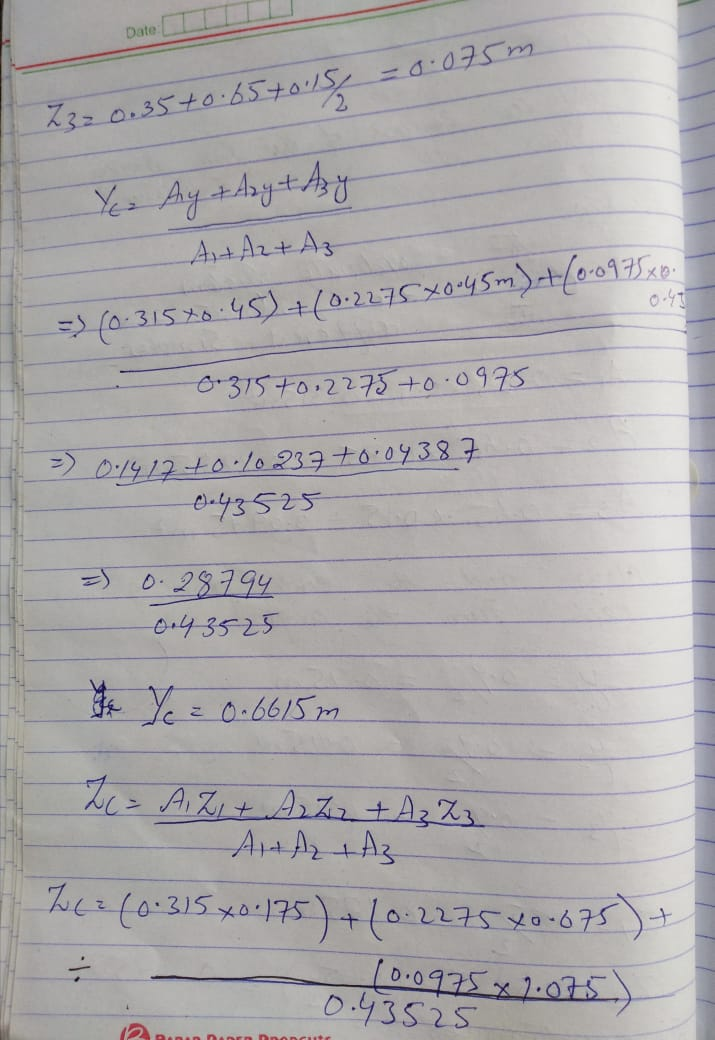 Date
Z3 = 0.35+0.65+0.15/2 = 0.075m
Yc = A1y + A2y + A3y
A1+A2+A3
=> (0.315×0.45) + (0.2275×0.45m) + (0.0975×0.
0.45
0.315+0.2275+0.0975
=> 0.1417+0.10237+0.04387
0.43525
=> 0.28794
0.43525
Yc = 0.6615m
Zc = A1Z1 + A2Z2 + A3Z3
A1+A2+A3
Zc = (0.315×0.175) + (0.2275×0.675) +
÷ (0.0975×1.075)
0.43525